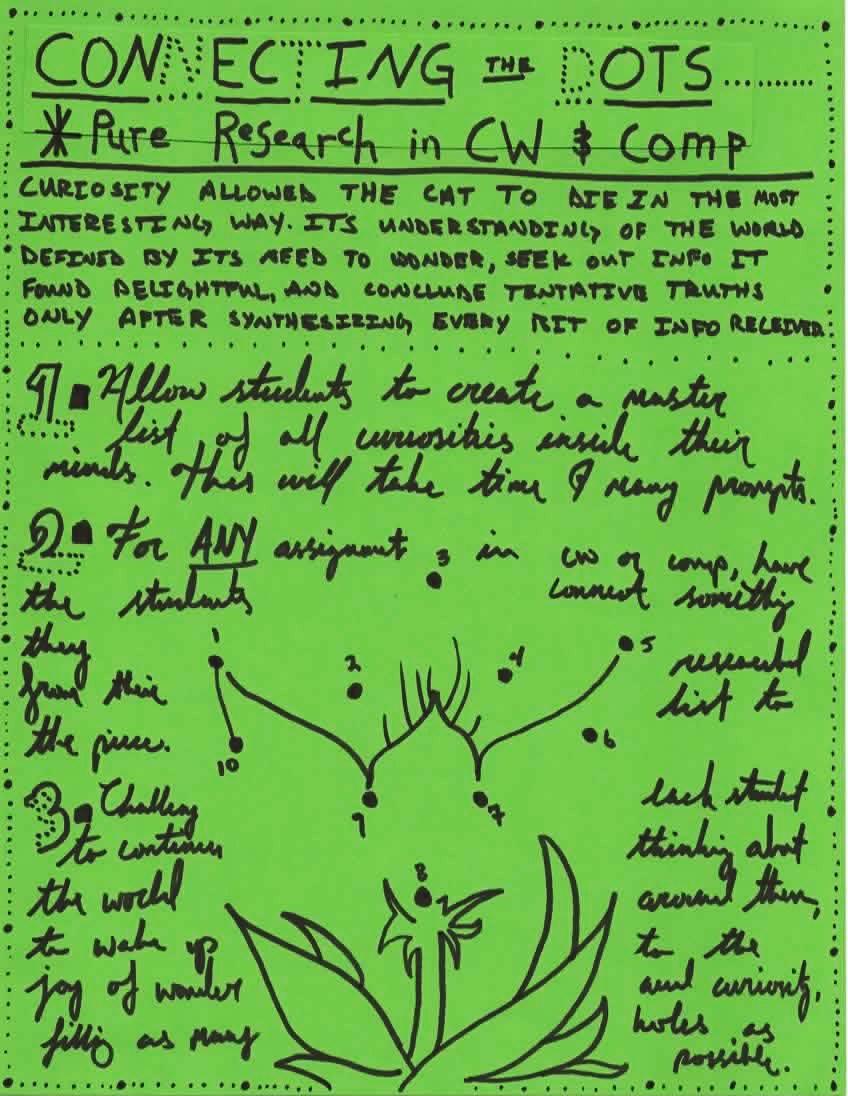 CONNECTING THE DOTS
* Pure Research in CW & Comp
CURIOSITY ALLOWED THE CAT TO DIE IN THE MOST
INTERESTING WAY. ITS UNDERSTANDING OF THE WORLD
DEFINED BY ITS NEED TO WONDER, SEEK OUT INFO IT
FOUND DELIGHTFUL, AND CONCLUDE TENTATIVE TRUTHS
ONLY AFTER SYNTHESIZING EVERY BIT OF INFO RECEIVED.
1. Allow students to create a master
list of all curiosities inside their
minds. This will take time & many prompts.
2. For ANY assignment in CW or comp, have
the students connect something
they researched
from their list to
the piece.
3. Challeng each student
to continue thinking about
the world around them,
to wake up to the
joy of wonder and curiosity,
filling as many holes as
possible.
1
2
3
4
5
6
7
8
9
10